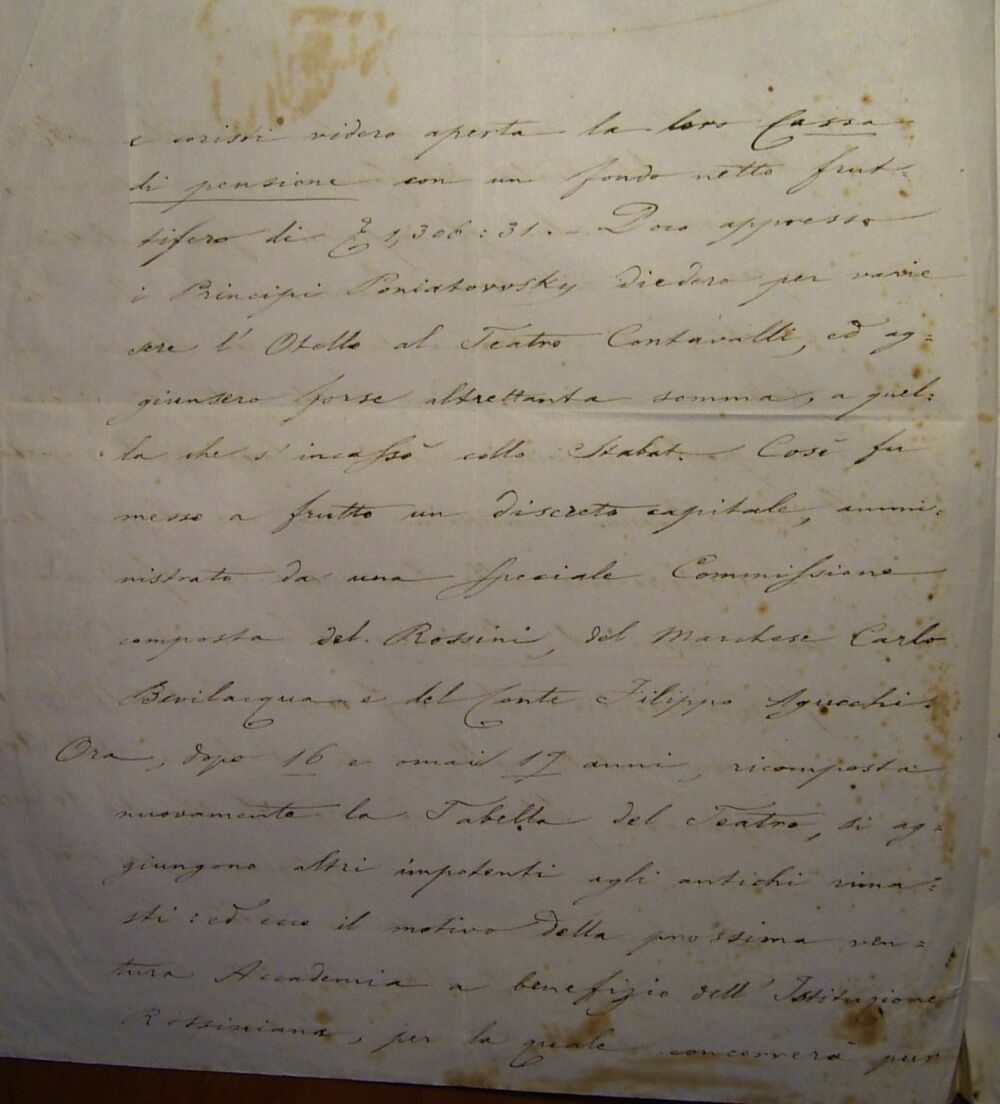 e coristi videro aperta la loro Cassa
di pensione con un fondo netto frut=
tifero di £ 1,306:31. – Poco appresso
i Principi Poniatovvsky diedero per varie
sere l'Otello al Teatro Contavalli, ed ag=
giunsero forse altrettanta somma, a quel=
la che s'incassò collo Stabat. – Così fu
messo a frutto un discreto capitale, ammi=
nistrato da una speciale Commissione
composta del Rossini, del Marchese Carlo
Bevilacqua e del Conte Filippo Agucchi.
Ora, dopo 16 e omai 17 anni, ricomposta
nuovamente la Tabella del Teatro, si ag=
giungono altri impotenti agli antichi rima=
sti: ed ecco il motivo della prossima ven=
tura Accademia a benefizio dell'Istituzione
Rossiniana, per la quale concorrerà pur